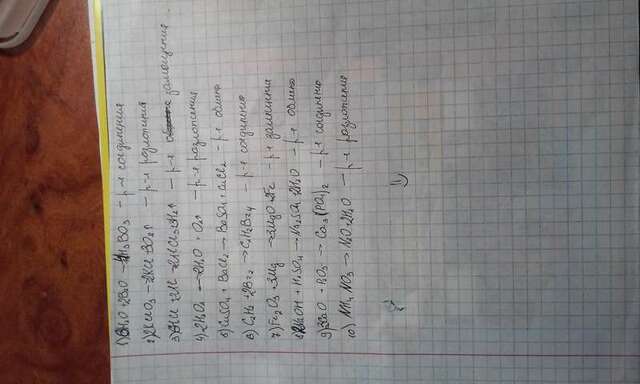 1) 6H2O + 2B2O → 4H3BO3 - р-я соединения
2) 2KClO3 → 2KCl + 3O2↑ - р-я разложения
3) 6HCl + 2Al → 2AlCl3 + 3H2↑ - р-я замещения
4) 2H2O2 → 2H2O + O2↑ - р-я разложения
5) CuSO4 + BaCl2 → BaSO4 + CuCl2 - р-я обмена
6) C2H2 + 2Br2 → C2H2Br4 - р-я соединения
7) Fe2O3 + 3Mg → 3MgO + 2Fe - р-я замещения
8) 2NaOH + H2SO4 → Na2SO4 + 2H2O - р-я обмена
9) 3CaO + P2O5 → Ca3(PO4)2 - р-я соединения
10) NH4NO3 → N2O + 2H2O - р-я разложения